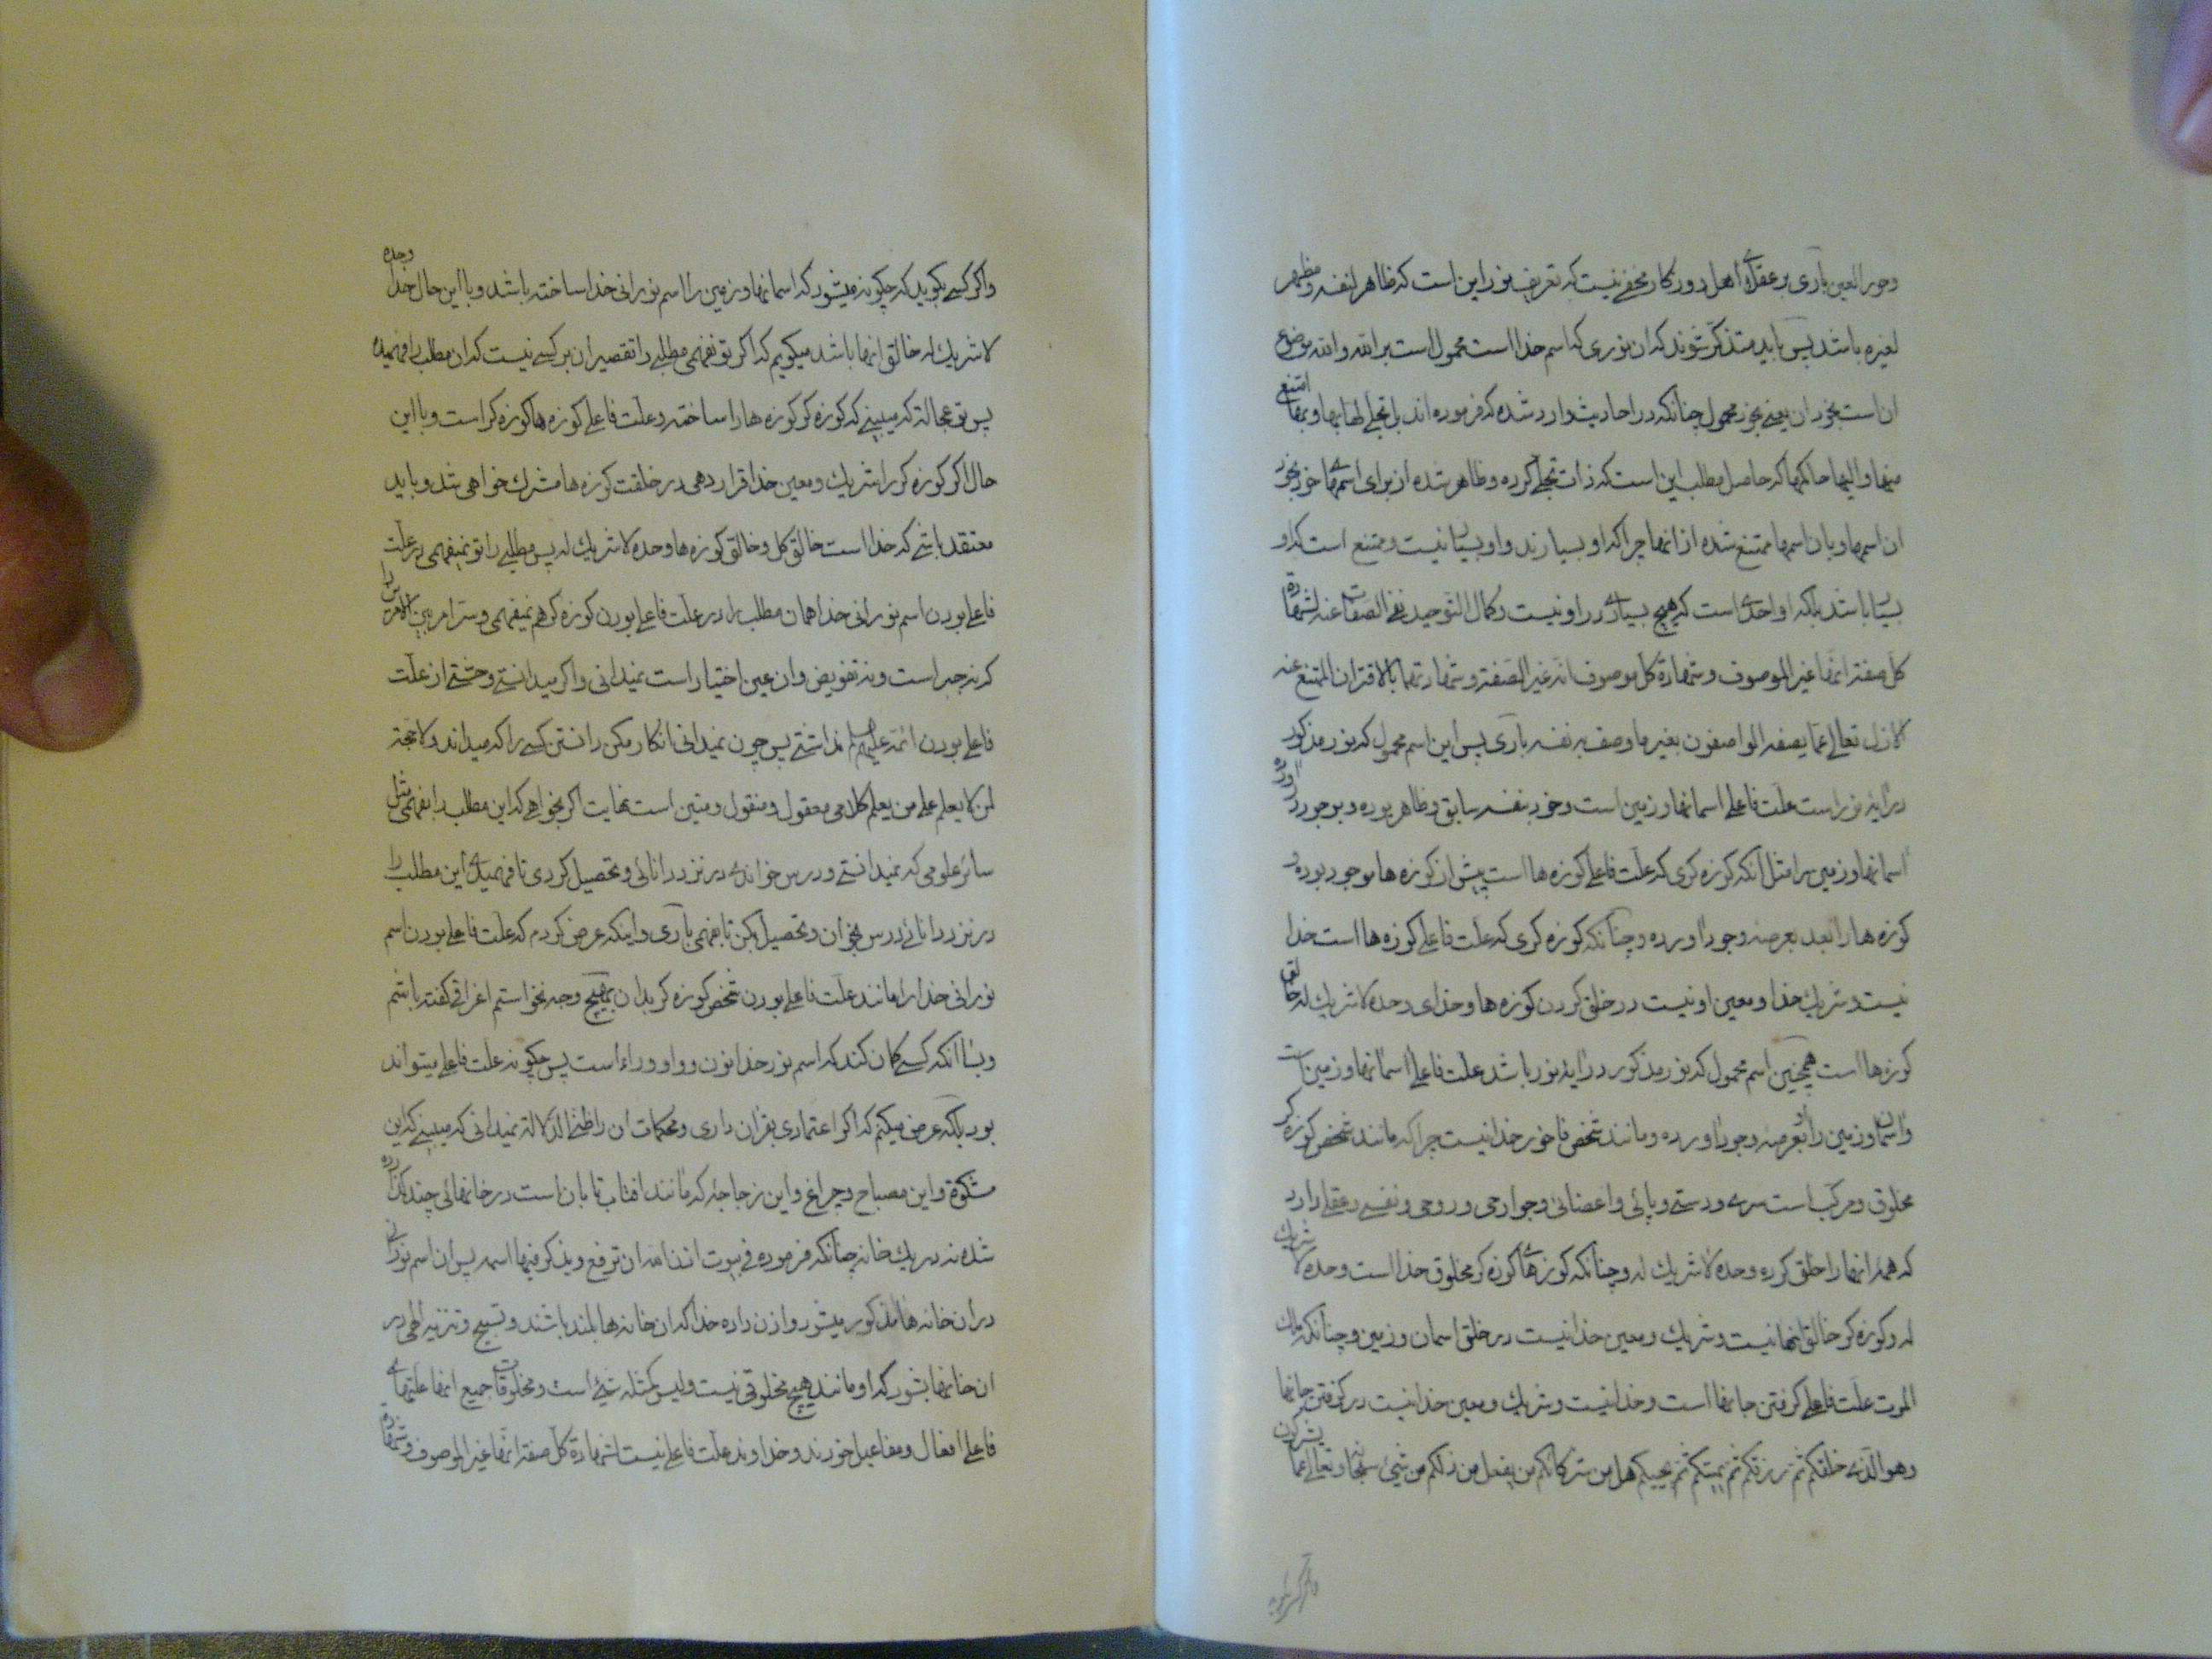 وحور العین باری بر عقلای اهل روزکار مخفی نیست که تعریف نور این است که ظاهر لنفسه و مظهر
لغیره باشد پس باید متذکر شوند که ان نوری که اسم خدا است محمول است بر الله و الله موضوع
ان است بخود ان یعنی بخود محمول چنانکه در احادیث وارد شده که فرموده اند بل تجلی لها بها و بها امتنع
منها و الیها حاکمها که حاصل مطلب این است که ذات تجلی کرده و ظاهر شده از برای اسمهای خود بخود
ان اسمها و بان اسمها ممتنع شده از انها چرا که او بسیارند و او بسیار نیست و ممتنع است که او
بسیار باشد بلکه او احدی است که هیچ بسیاری در او نیست و کمال التوحید نفی الصفات عنه لشهادة
کل صفة انها غیر الموصوف و شهادة کل موصوف انه غیر الصفة و شهادتهما بالاقتران الممتنع عنه
الازل تعالی عما یصفه الواصفون بغیر ما وصف به نفسه باری پس این اسم محمول که نور مذکور
در ایه نور است علت فاعلی اسمانها و زمین است و خود بنفسه سابق و ظاهر بوده و بوجود اورده
اسمانها و زمین را مثل انکه کوزه کری که علت فاعلی کوزه ها است پیش از کوزه ها موجود بوده و
کوزه ها را بعد بعرصه وجود اورده و چنانکه کوزه کری که علت فاعلی کوزه ها است خدا
نیست و شریک خدا و معین او نیست در خلق کردن کوزه ها و خدای وحده لاشریک له خالق
کوزه ها است همچنین اسم محمول که نور مذکور در ایه نور باشد علت فاعلی اسمانها و زمین است
و اسمان و زمین را او بعرصه وجود اورده و مانند شخص فاخور خدا نیست چرا که مانند شخص کوزه کر
مخلوق و مرکب است سری و دستی و پائی و اعضائی و جوارحی و روحی و نفسی و عقلی دارد
که همه انها را خلق کرده وحده لاشریک له و چنانکه کوزهای کوزه کر مخلوق خدا است وحده لا شریک
له و کوزه کر خالق انها نیست و شریک و معین خدا نیست در خلق اسمان و زمین و چنانکه ملک
الموت علت فاعلی کرفتن جانها است و خدا نیست و شریک و معین خدا نیست در کرفتن جانها
و هو الذی خلقکم ثم رزقکم ثم یمیتکم ثم یحییکم هل من شرکائکم من یفعل من ذلکم من شیئ سبحانه و تعالی عما یشرکون
واکر کسی بکوید که چکونه میشود که اسمانها و زمین را اسم نورانی خدا ساخته باشد و با این حال خدا وحده
لاشریک له خالق انها باشد میکویم که اکر تو نفهمی مطلبی را تقصیر ان بر کسی نیست که ان مطلب را فهمیده
پس تو عجالة که میبینی که کوزه کر کوزه ها را ساخته و علت فاعلی کوزه ها کوزه کر است و با این
حال اکر کوزه کر را شریک و معین خدا قرار دهی در خلقت کوزه ها مشرک خواهی شد و باید
معتقد باشی که خدا است خالق کل و خالق کوزه ها وحده لاشریک له پس مطلبی را تو نمیفهمی در علت
فاعلی بودن اسم نورانی خدا همان مطلب را در علت فاعلی بودن کوزه کر هم نمیفهمی و سر امر بین الامرین را
که نه جبر است و نه تفویض و ان عین اختیار است نمیدانی و اکر میدانستی وحشتی از علت
فاعلی بودن ائمه علیهم السلام نداشتی پس چون نمیدانی انکار مکن دانستن کسی را که میداند و لا حجة
لمن لا یعلم علی من یعلم کلامی معقول و منقول و متین است نهایت اکر بخواهی که این مطلب را بفهمی مثل
سائر علومی که نمیدانستی و درس خواندی در نزد دانائی و تحصیل کردی تا فهمیدی این مطلب را
در نزد دانائی درس بخوان و تحصیل بکن تا بفهمی باری و اینکه عرض کردم که علت فاعلی بودن اسم
نورانی خدا را مانند علت فاعلی بودن شخص کوزه کر بدان بهیچ وجه نخواستم اغراقی کفته باشم
و بسا انکه کسی کمان کند که اسم نور خدا نون و واو و راء است پس چکونه علت فاعلی میتواند
بود بلکه عرض میکنم که اکر اعتمادی بقران داری و محکمات ان را ظنی الدلالة نمیدانی که میبینی که این
مشکوة و این مصباح و چراغ و این زجاجه که مانند افتاب تابان است در خانهائی چند ذکر
شده نه در یک خانه چنانکه فرموده فی بیوت اذن الله ان ترفع و یذکر فیها اسمه پس ان اسم نورانی
در ان خانه ها مذکور میشود و اذن داده خدا که ان خانه ها بلند باشند و تسبیح و تنزیه الهی در
ان خانها بشود که او مانند هیچ مخلوقی نیست و لیس کمثله شیئ است و مخلوقات جمیع انها علتهای
فاعلی افعال و مفاعیل خودند و خداوند علت فاعلی نیست لشهادة کل صفة انها غیر الموصوف و شهادة